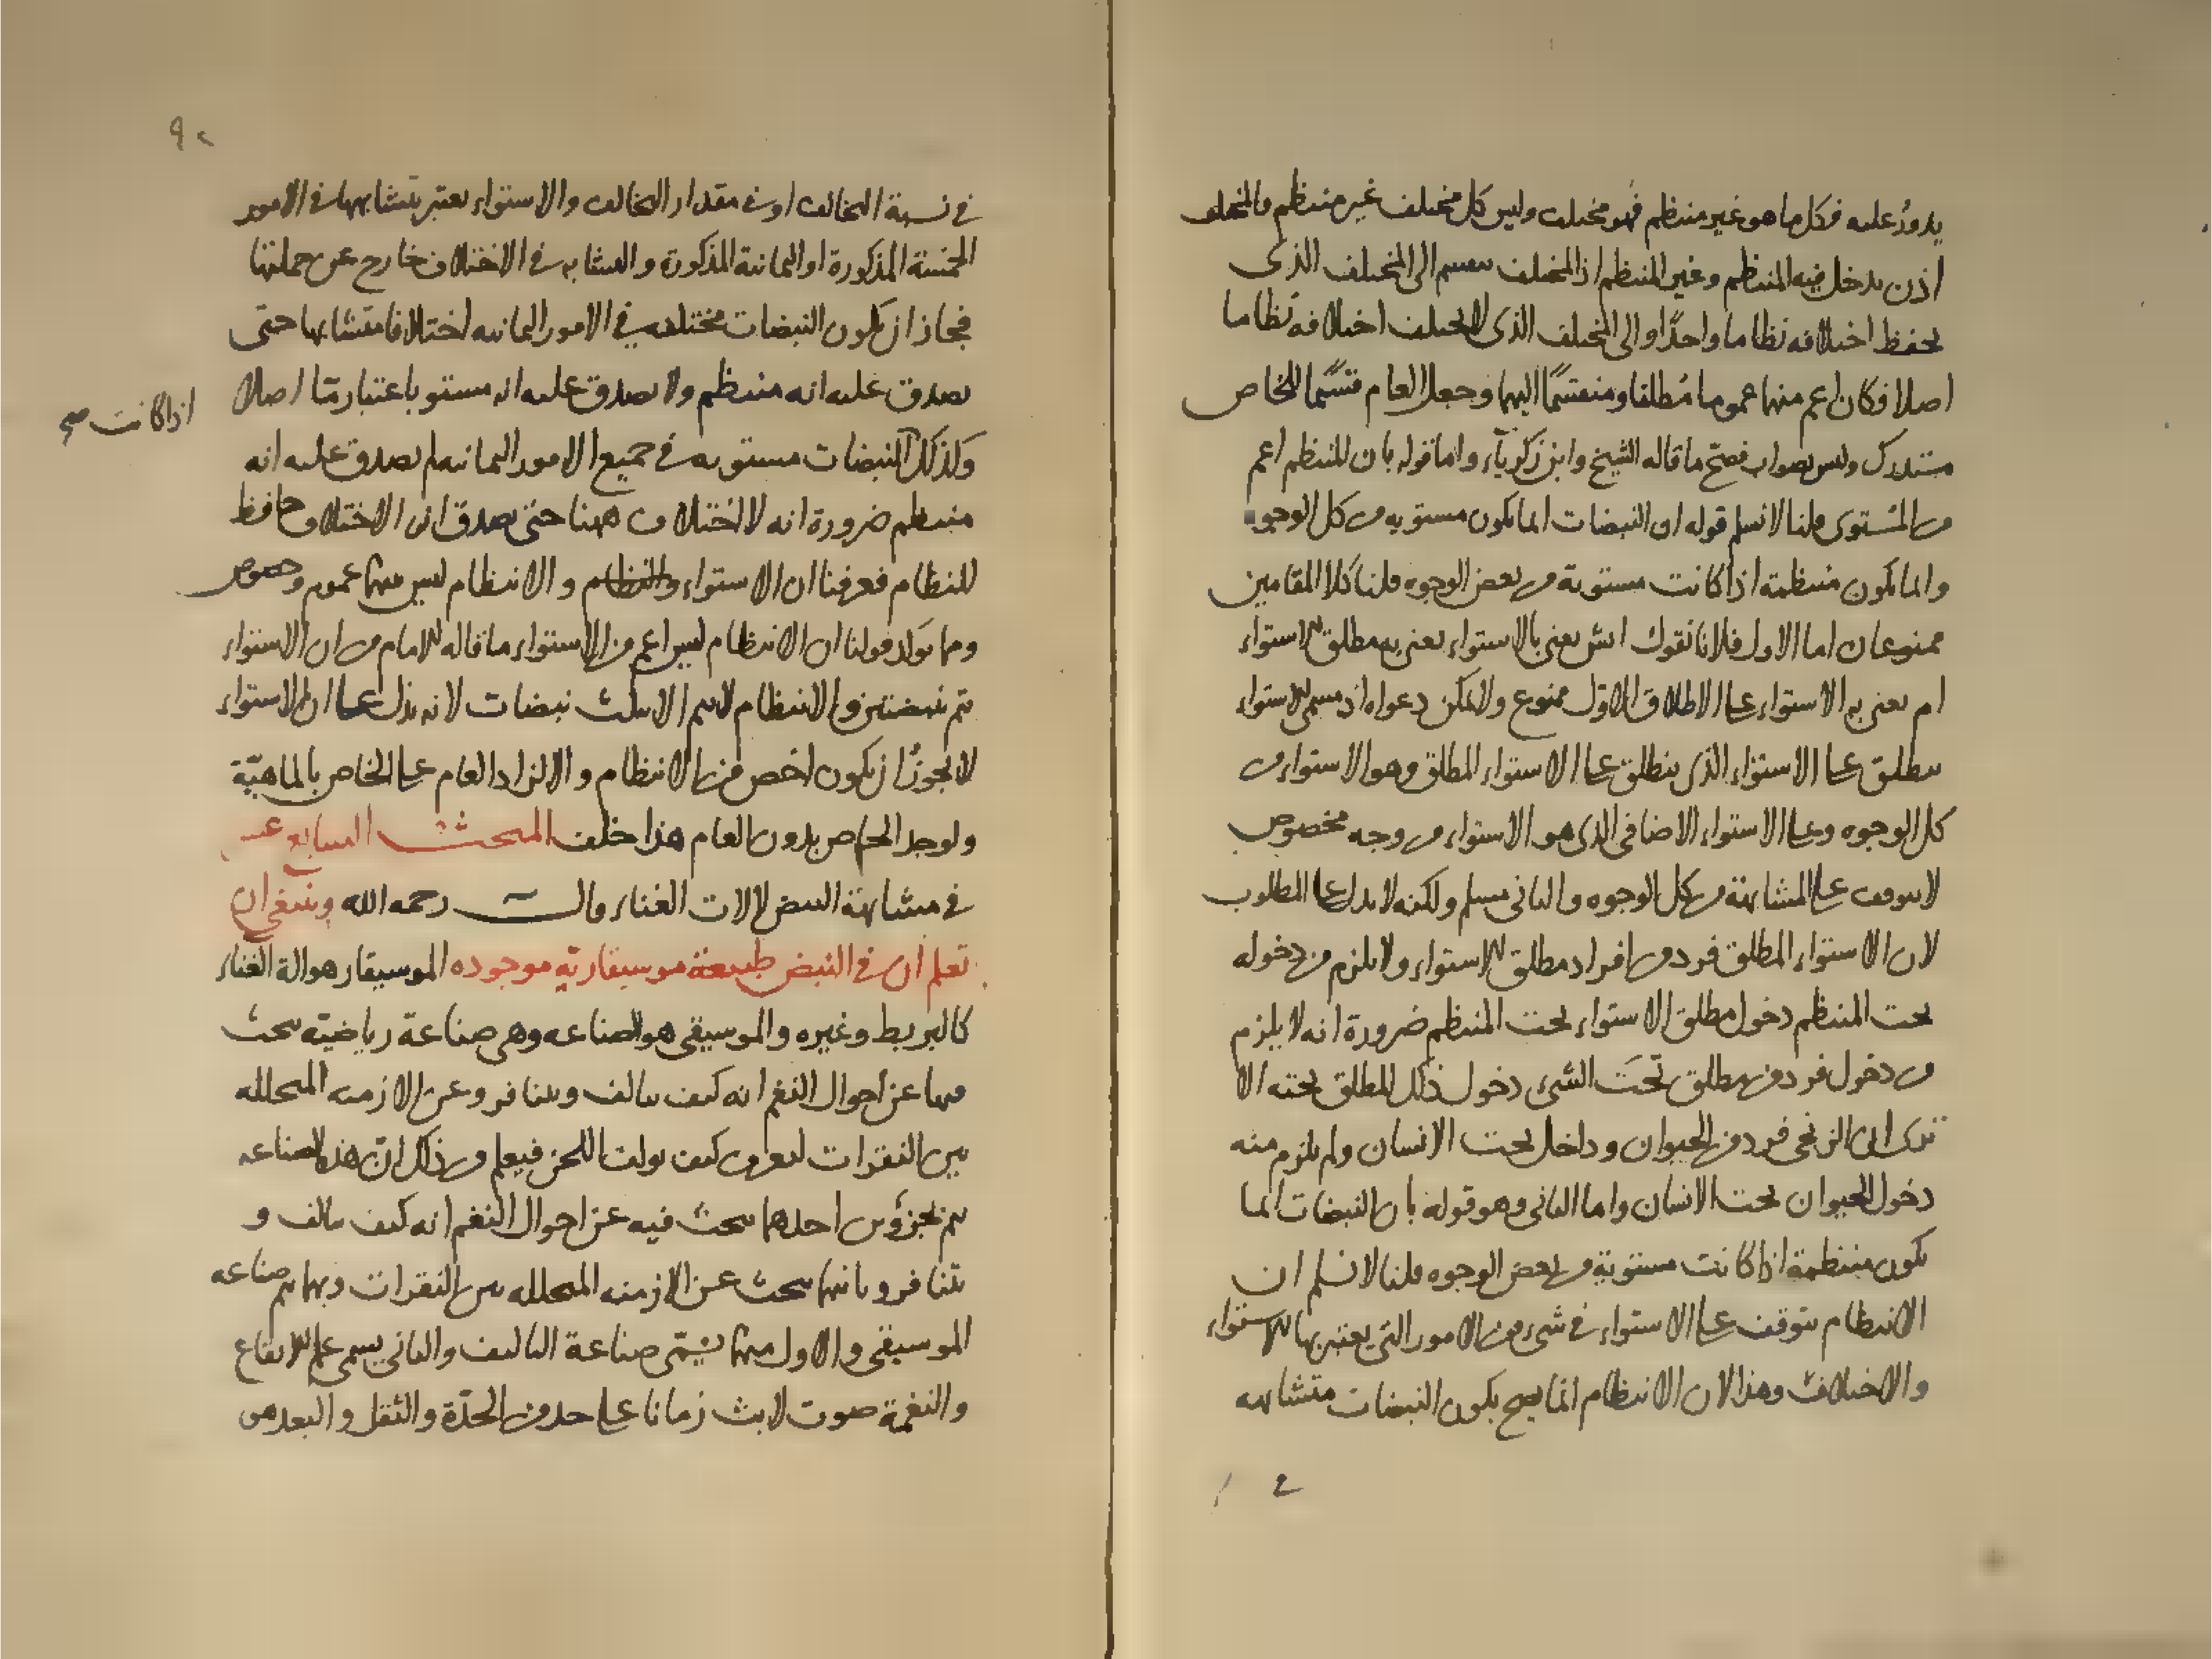 يدور عليه فكل ما هو غير منتظم فهو مختلف وليس كل مختلف غير منتظم فالمختلف
اذن يدخل فيه المنتظم وغير المنتظم اذ المختلف ينقسم الى المختلف الذى
يحفظ اختلافه نظاما واحدًا والى المختلف الذى لا يحفظ اختلافه نظاما
اصلا فكان اعم منهما عموما مُطلقا ومنقسمًا اليهما وجعل العام قسمًا للخاص
مستدرك وليس بصواب فصح ما قاله الشيخ وابن زكرياء واما قوله بان المنتظم اعم
من المستوى قلنا لا نسلم قوله ان النبضات انما يكون مستويه من كل الوجوه
وانما يكون منتظمة اذا كانت مستوية من بعض الوجوه قلنا كلا المقامين
ممنوعان اما الاول فلانا نقول ايش يعنى بالاستواء يعنى به مطلق الاستواء
ام يعنى به الاستواء على الاطلاق الاول ممنوع ولا يمكن دعواه اذ مسمى الاستواء
ينطلق على الاستواء الذى ينطلق على الاستواء المطلق وهو الاستواء من
كل الوجوه وعلى الاستواء الاضافى الذى هو الاستواء من وجه مخصوص
لا يتوقف على المشابهة من كل الوجوه والثانى مسلم ولكنه لا يدل على المطلوب
لان الاستواء المطلق فرد من افراد مطلق الاستواء ولا يلزم من دخوله
تحت المنتظم دخول مطلق الاستواء تحت المنتظم ضرورة انه لا يلزم
من دخول فرد من مطلق تحت الشىء دخول ذلك المطلق تحته الا
ترى ان الزنجى فرد من الحيوان وداخل تحت الانسان ولم يلزم منه
دخول الحيوان تحت الانسان واما الثانى وهو قوله بان النبضات انما
يكون منتظمة اذا كانت مستوية من بعض الوجوه قلنا لا نسلم ان
الانتظام يتوقف على الاستواء فى شىء من الامور التى يعتبر بها الاستواء
والاختلاف وهذا لان الانتظام انما يصح بكون النبضات متشابهه
فى نسبة التخالف او فى مقدار التخالف والاستواء يعتبر بتشابهها فى الامور
الخمسة المذكورة او الثمانية المذكورة والتشابه فى الاختلاف خارج عن جملتها
فجاز ان يكون النبضات مختلفه فى الامور الثمانيه اختلافا متشابها حتى
يصدق عليه انه منتظم ولا يصدق عليه انه مستو باعتبار ما اصلا
وكذلك النبضات مستويه فى جميع الامور الثمانيه لم يصدق عليه انه
اذا كانت صح
منتظم ضرورة انه لا اختلاف ههنا حتى يصدق ان الاختلاف حافظ
للنظام فعرفنا ان الاستواء والنظام والانتظام ليس بينهما عموم وخصوص
ومما يوكد قولنا ان الانتظام ليس اعم من الاستواء ما قاله الامام من ان الاستواء
يتم بنبضتين والانتظام لا يتم الا بثلث نبضات لانه يدل على ان الاستواء
لا يجوز ان يكون اخص من الانتظام والا لزاد العام على الخاص بالماهيّة
ولوجد الخاص بدون العام هذا خلف المبحث السابع عشر
فى مشابهة النبض لالات الغناء قال رحمه الله وينبغى ان
تعلم ان فى النبض طبيعة موسيقارية موجوده الموسيقار هو الة الغناء
كالبربط وغيره والموسيقى هو الصناعه وهى صناعة رياضية يبحث
فيها عن احوال النغم انه كيف يتالف ويتنافر وعن الازمنه المتخلله
بين النقرات ليعرف كيف يولف اللحن فيعلم من ذلك ان هذه الصناعه
يتم بجزؤين احدهما يبحث فيه عن احوال النغم انه كيف يتالف و
يتنافر وثانيهما يبحث عن الازمنه المتخلله بين النقرات وبهما يتم صناعه
الموسيقى والاول منهما يسمى صناعة التاليف والثانى يسمى علم الايقاع
والنغمة صوت لابث زمانا على حد من الحدّة والثقل والبعد هى